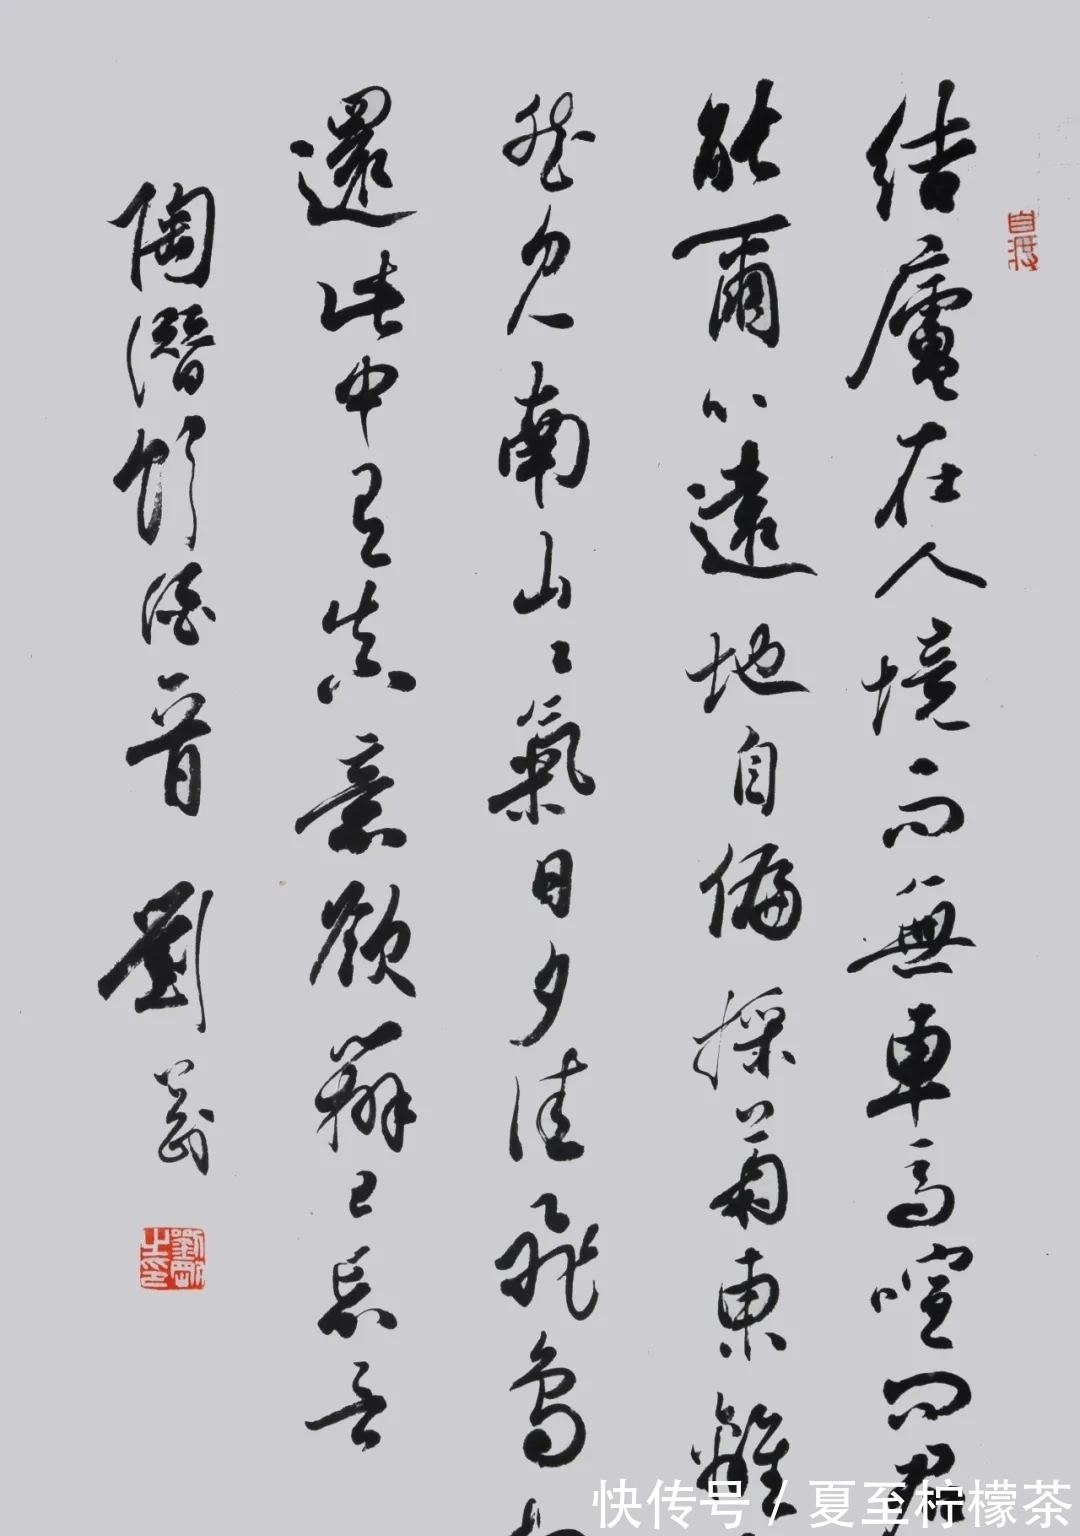 結廬在人境而無車馬喧問君
能爾心遠地自偏採菊東籬
然見南山〻氣日夕佳飛鳥相
還此中有真意欲辯已忘言
陶潛飲酒一首 劉
快传号 / 夏至柠檬茶